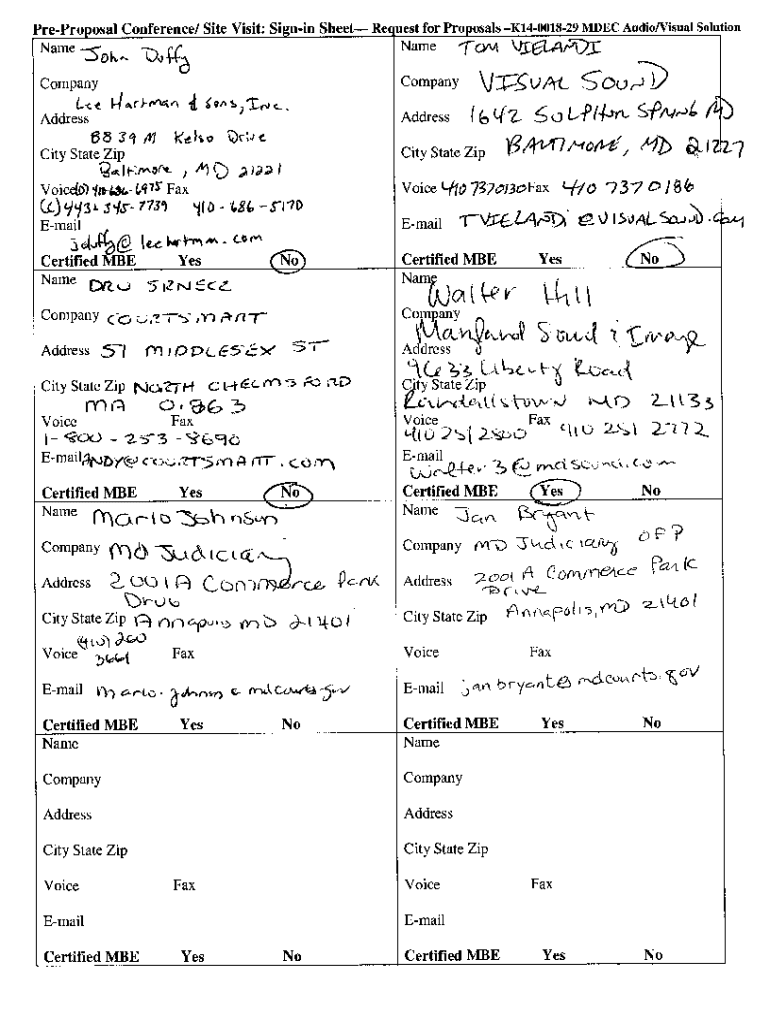 Pre-Proposal Conference/ Site Visit: Sign-in Sheet— Request for Proposals –K14-0018-29 MDEC Audio/Visual Solution
Name John Duffy
Company
Lee Hartman & Sons, Inc.
Address
8839 M Kelso Drive
City State Zip
Baltimore, MD 21221
Voice(O) 410-686-6975 Fax
(C) 443-345-7739 410-686-5170
E-mail
jduffy@leehartman.com
Certified MBE Yes No
Name TOM VIELANDI
Company VISUAL SOUND
Address 1642 SULPHUR SPRING RD
City State Zip BALTIMORE, MD 21227
Voice 410 7370130 Fax 410 737 0186
E-mail TVIELANDI@VISUALSOUND.COM
Certified MBE Yes No
Name DRU SRNECZ
Company COURTSMART
Address 51 MIDDLESEX ST
City State Zip NORTH CHELMSFORD
MA 01863
Voice Fax
1-800-253-8690
E-mail ANDY@COURTSMART.COM
Certified MBE Yes No
Name
Walter Hill
Company
Maryland Sound & Image
Address
9633 Liberty Road
City State Zip
Randallstown MD 21133
Voice Fax
410 251 2800 410 251 2772
E-mail
Walter3@mdsound.com
Certified MBE Yes No
Name Mario Johnson
Company MD Judiciary
Address 2001A Commerce Park
Drive
City State Zip Annapolis MD 21401
(410) 260
Voice 3661 Fax
E-mail mario.johnson@mdcourts.gov
Certified MBE Yes No
Name Jan Bryant
Company MD Judiciary OFP
Address 2001 A Commerce Park
Drive
City State Zip Annapolis, MD 21401
Voice Fax
E-mail jan.bryant@mdcourts.gov
Certified MBE Yes No
Name
Company
Address
City State Zip
Voice Fax
E-mail
Certified MBE Yes No
Name
Company
Address
City State Zip
Voice Fax
E-mail
Certified MBE Yes No